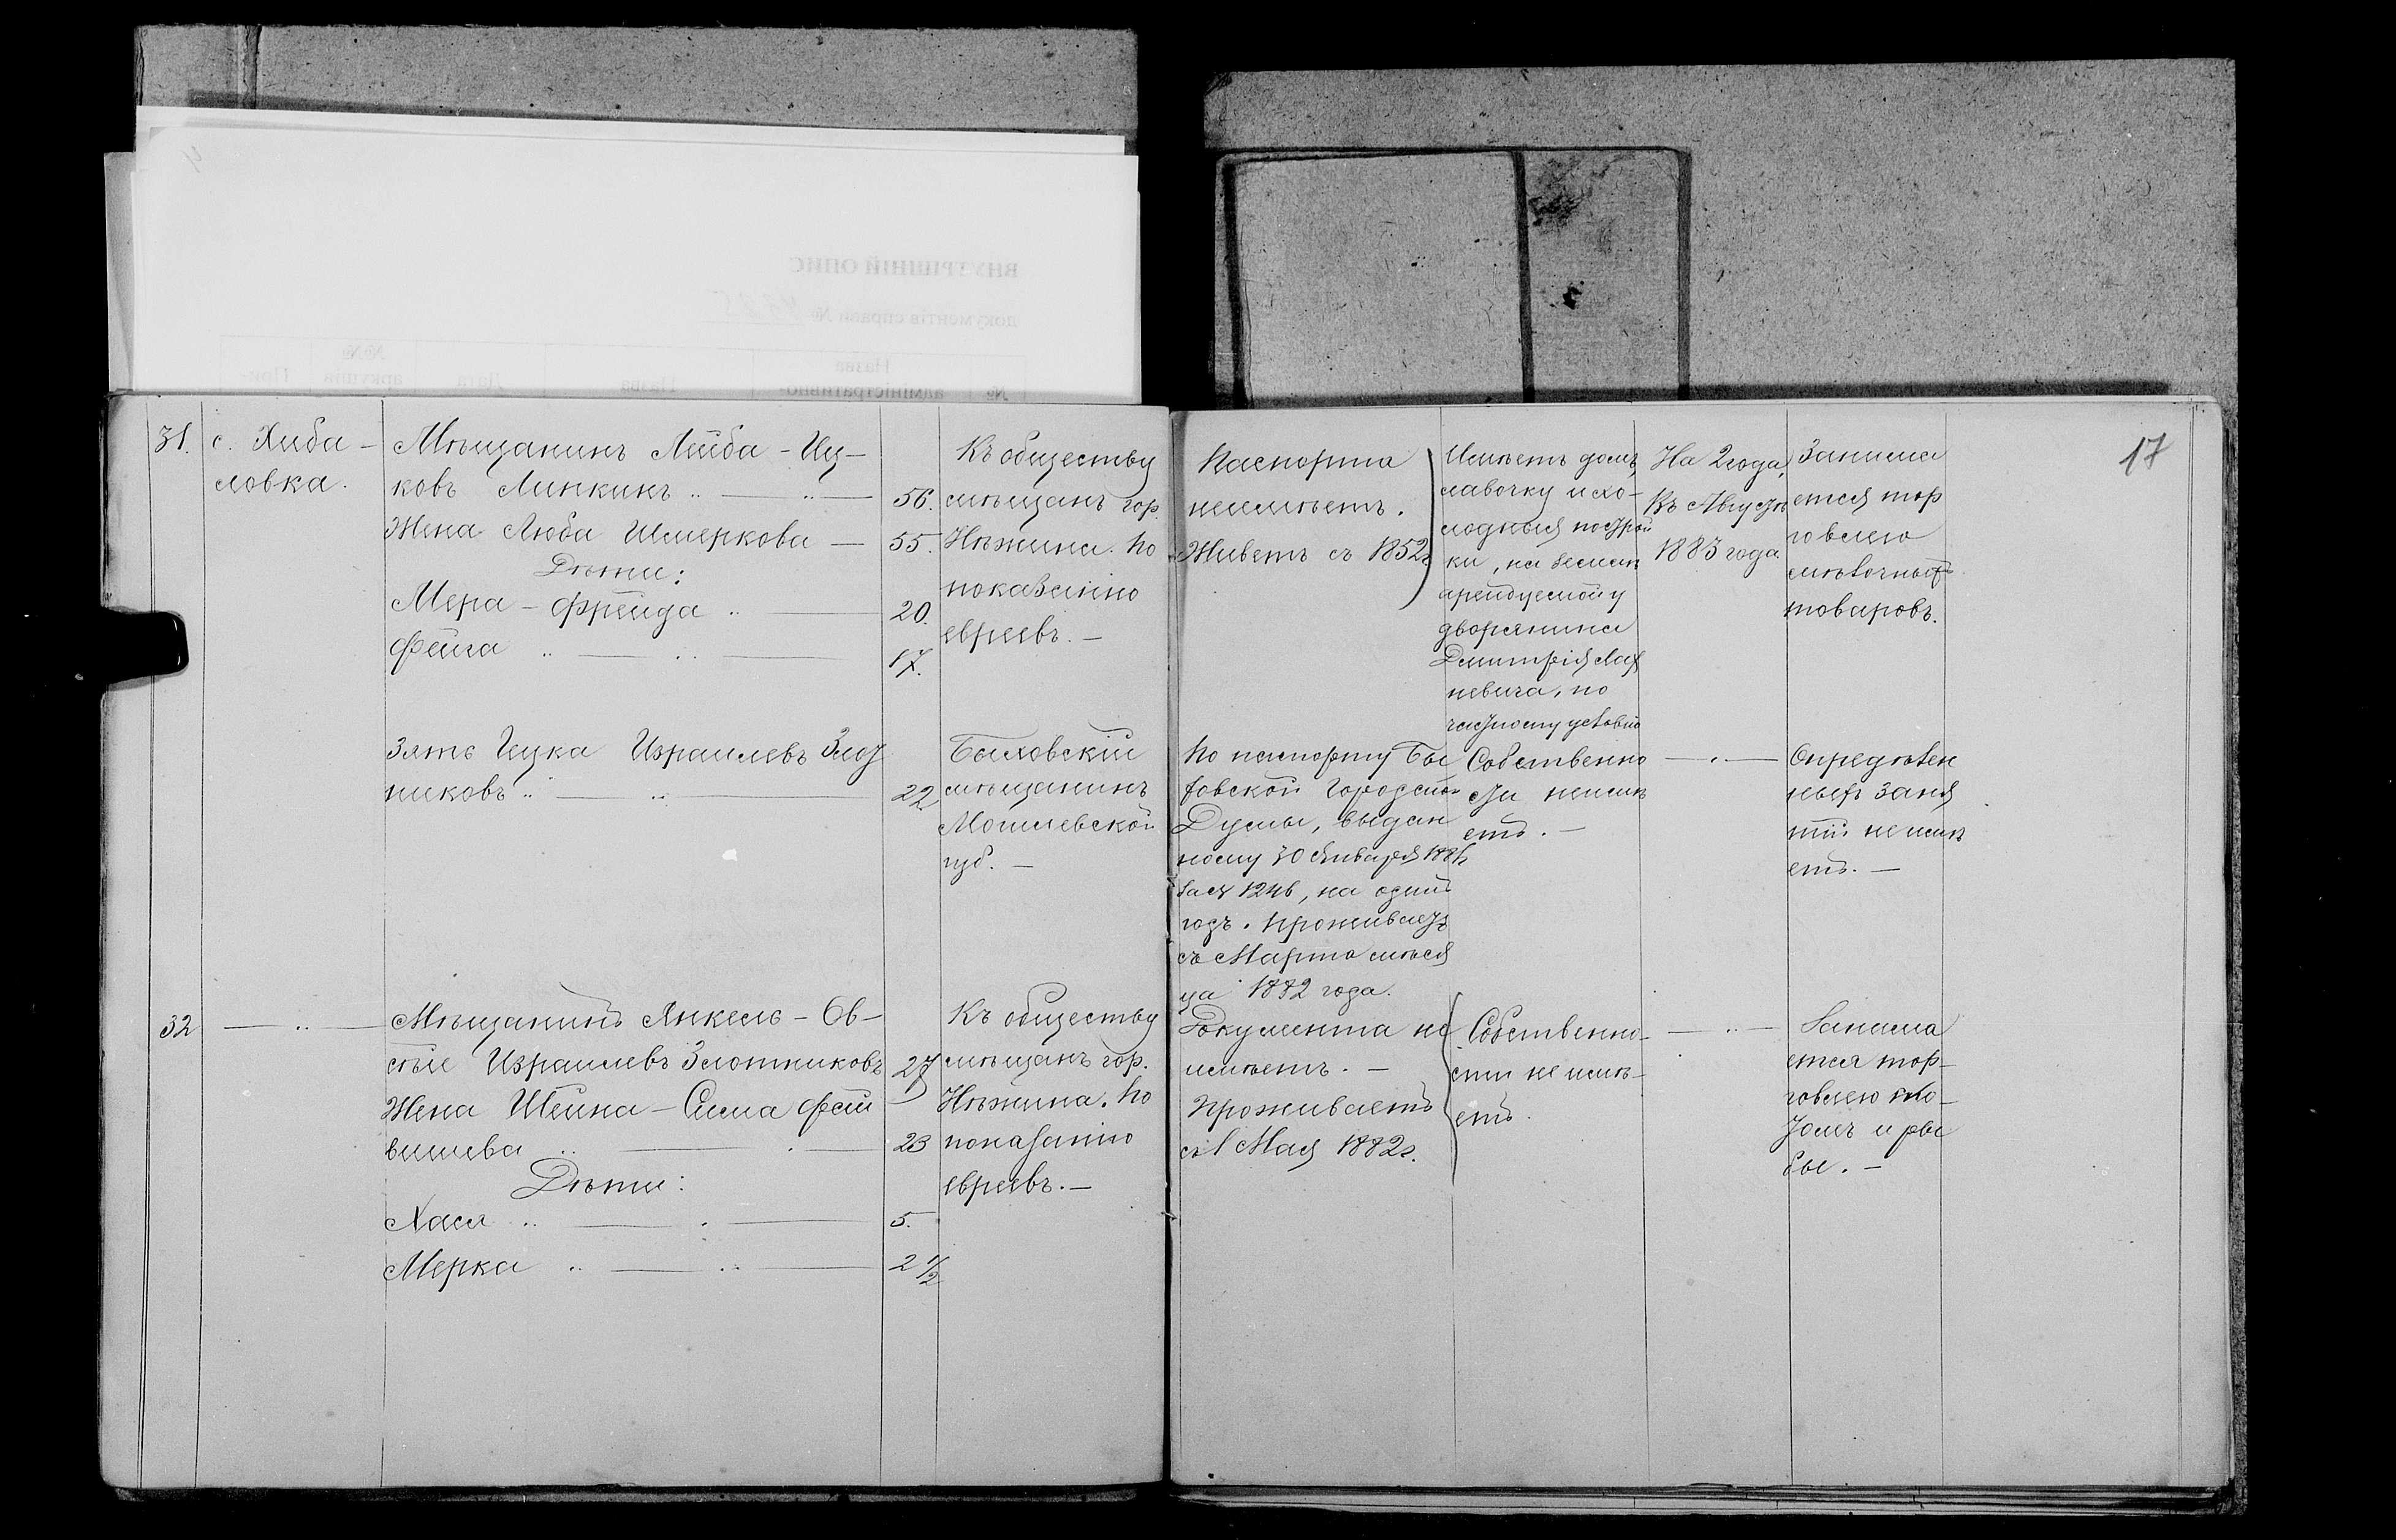 ВНУТРІШНІЙ ОПИС
документів справи №
№
Назва
адміністративно-
Назва
Дата
№№
аркушів
При-
17
31.
с. Хиба-
ловка.
Мѣщанинъ Лейба-Иц-
ковъ Линкинъ
56.
Жена Люба Шмеркова —
55.
Дѣти:
Мера-Фрейда
20.
Фейга
17.
Къ обществу
мѣщанъ гор.
Нѣжина. По
показанію
евреевъ. —
Паспорта
неимѣетъ.
Живетъ съ 1852г
Имѣетъ домъ,
лавочку и хо-
лодныя построй
ки, на земли
арендуемой у
дворянина
Дмитрія
невича, по
частному условію
На 2 года,
Къ Августу
1883 года
Занима
ется тор
говлею
мѣлочныхъ
товаровъ.
Зять Ицка Израилевъ Злот
никовъ
22
Быховскій
мѣщанинъ
Могилевской
губ. —
По паспорту Бы
ховской Городской
Думы, выдан
ному 30 Января
за № 1246, на одинъ
годъ. Проживаетъ
съ Марта мѣся
ца 1882 года.
Собственно
сти неимѣ
етъ. —
Опредѣлен
ныхъ заня
тій не имѣ
етъ. —
32
Мѣщанинъ Янкель-Ов-
сѣе Израилевъ Злотниковъ
27
Жена Шейна-Сима Фай
вишева
23
Дѣти:
Хася
5.
Мерка
2 1/2
Къ обществу
мѣщанъ гор.
Нѣжина. По
показанію
евреевъ. —
Документа не
имѣетъ. —
Проживаетъ
съ 1 Мая 1882г.
Собственно-
сти не имѣ-
етъ.
Занима
ется тор-
говлею ско-
томъ и ры
бы. —